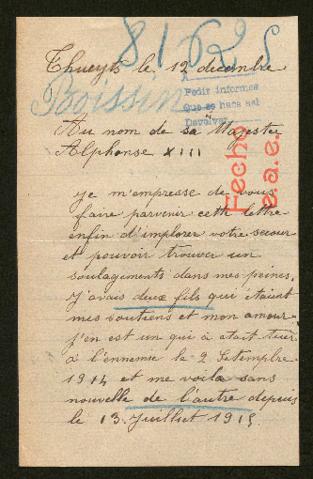 81695
Thueyts le 12 decembre
Boissin
Pedir informes
Que se haga sel
Devolver
Au nom de sa Magester
Alphonse XIII
Fecho
e.a.e.
je m'empresse de vous
faire parvenir cette lettre
enfin d'implorer votre secour
et pouvoir trouver un
soulagements dans mes peines.
J'avais deux fils qui étaient
mes soutiens et mon amour,
j'en est un qui a etait tuer
à l'ennemie le 2 Setembre
1914 et me voila sans
nouvelle de l'autre depuis
le 13 Juilliet 1915